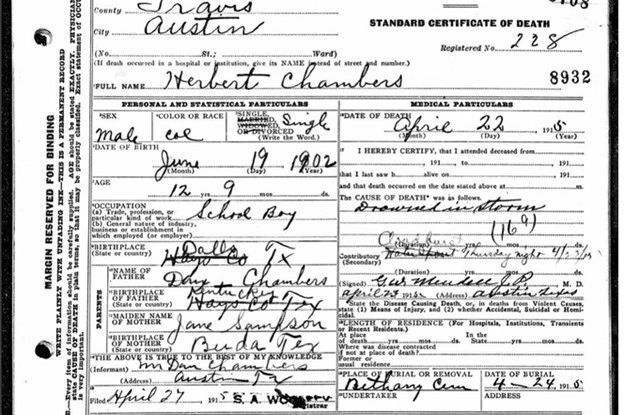 County Travis
City Austin
STANDARD CERTIFICATE OF DEATH
(No. St.; Ward)
Registered No. 228
(If death occurred in a hospital or institution, give its NAME instead of street and number.)
8932
FULL NAME Herbert Chambers
PERSONAL AND STATISTICAL PARTICULARS
MEDICAL PARTICULARS
*SEX Male
*COLOR OR RACE Col
*SINGLE, MARRIED, WIDOWED, OR DIVORCED (Write the Word.) Single
*DATE OF DEATH April 22 1915
(Month) (Day) (Year)
*DATE OF BIRTH
June 19 1902
(Month) (Day) (Year)
I HEREBY CERTIFY, that I attended deceased from
, 191 , to , 191
that I last saw h alive on , 191
and that death occurred on the date stated above at m.
*AGE
12 yrs 9 mos. ds.
The CAUSE OF DEATH* was as follows:
Drowned in storm
(169)
*OCCUPATION
(a) Trade, profession, or particular kind of work
(b) General nature of industry, business or establishment in which employed (or employer)
School Boy
(Duration) yrs. mos. ds.
Contributory (Secondary) Thursday night
*BIRTHPLACE (State or country) Hays Co Tx
Dalls
*NAME OF FATHER Chambers
(Signed) M. D.
April 25 1915 (Address) Austin Texas
PARENTS
*BIRTHPLACE OF FATHER (State or country) Hays Co Tex
Kentucky
*MAIDEN NAME OF MOTHER Jane Sampson
*BIRTHPLACE OF MOTHER (State or country) Buda Tex
*State the Disease Causing Death, or, in deaths from Violent Causes, state (1) Means of Injury, and (2) whether Accidental, Suicidal or Homicidal.
*LENGTH OF RESIDENCE (For Hospitals, Institutions, Transients or Recent Residents.)
At place of death yrs. mos. ds.
In the State yrs. mos. ds.
Where was disease contracted if not at place of death?
Former or usual residence
THE ABOVE IS TRUE TO THE BEST OF MY KNOWLEDGE
(Informant) Chambers
(Address) Austin Tx
*PLACE OF BURIAL OR REMOVAL Bethany Cem
DATE OF BURIAL 4-24, 1915
Filed April 27 1915 S. A. Registrar
*UNDERTAKER (Address)
MARGIN RESERVED FOR BINDING
WRITE PLAINLY WITH UNFADING INK—THIS IS A PERMANENT RECORD